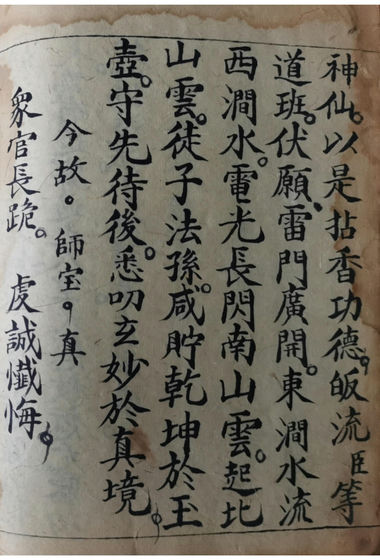 神仙。以是拈香功德。皈流臣等
道班。伏願、雷門廣開。東澗水流
西澗水。電光長閃南山雲。起北
山雲。徒子法孫。咸貯乾坤於玉
壺。守先待後。悉叨玄妙於真境。
今故。師宝。真
衆官長跪。虔誠懺悔。